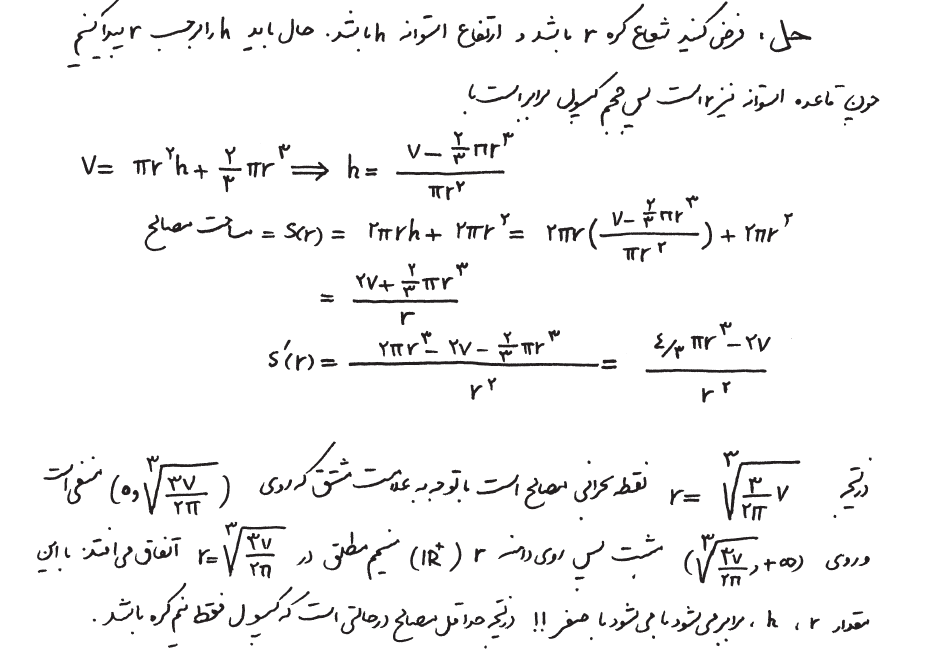 حل: فرض کنید شعاع کره r باشد و ارتفاع استوانه h باشد. حال باید h را برحسب r پیدا کنیم
چون قاعده استوانه نیز r است پس حجم کپسول برابر است با
V = πr^۲h + ۲/۳ πr^۳ ⟹ h = (V − ۲/۳ πr^۳) / πr^۲
مساحت مصالح = S(r) = ۲πrh + ۲πr^۲ = ۲πr((V − ۲/۳ πr^۳) / πr^۲) + ۲πr^۲
= (۲V + ۲/۳ πr^۳) / r
S′(r) = (۲πr^۳ − ۲V − ۲/۳ πr^۳) / r^۲ = (٤/۳ πr^۳ − ۲V) / r^۲
درنتیجه r = ∛(۳/۲π V) نقطه بحرانی مصالح است با توجه به علامت مشتق که روی (۰, ∛(۳V/۲π)) منفی است
و روی (∛(۳V/۲π), +∞) مثبت پس روی دامنه r (ℝ⁺) مینیمم مطلق در r = ∛(۳V/۲π) اتفاق می‌افتد. با این
مقدار r، h، برابر می‌شود با می‌شود با صفر !! درنتیجه حداقل مصالح درحالتی است که کپسول فقط نیم‌کره باشد.